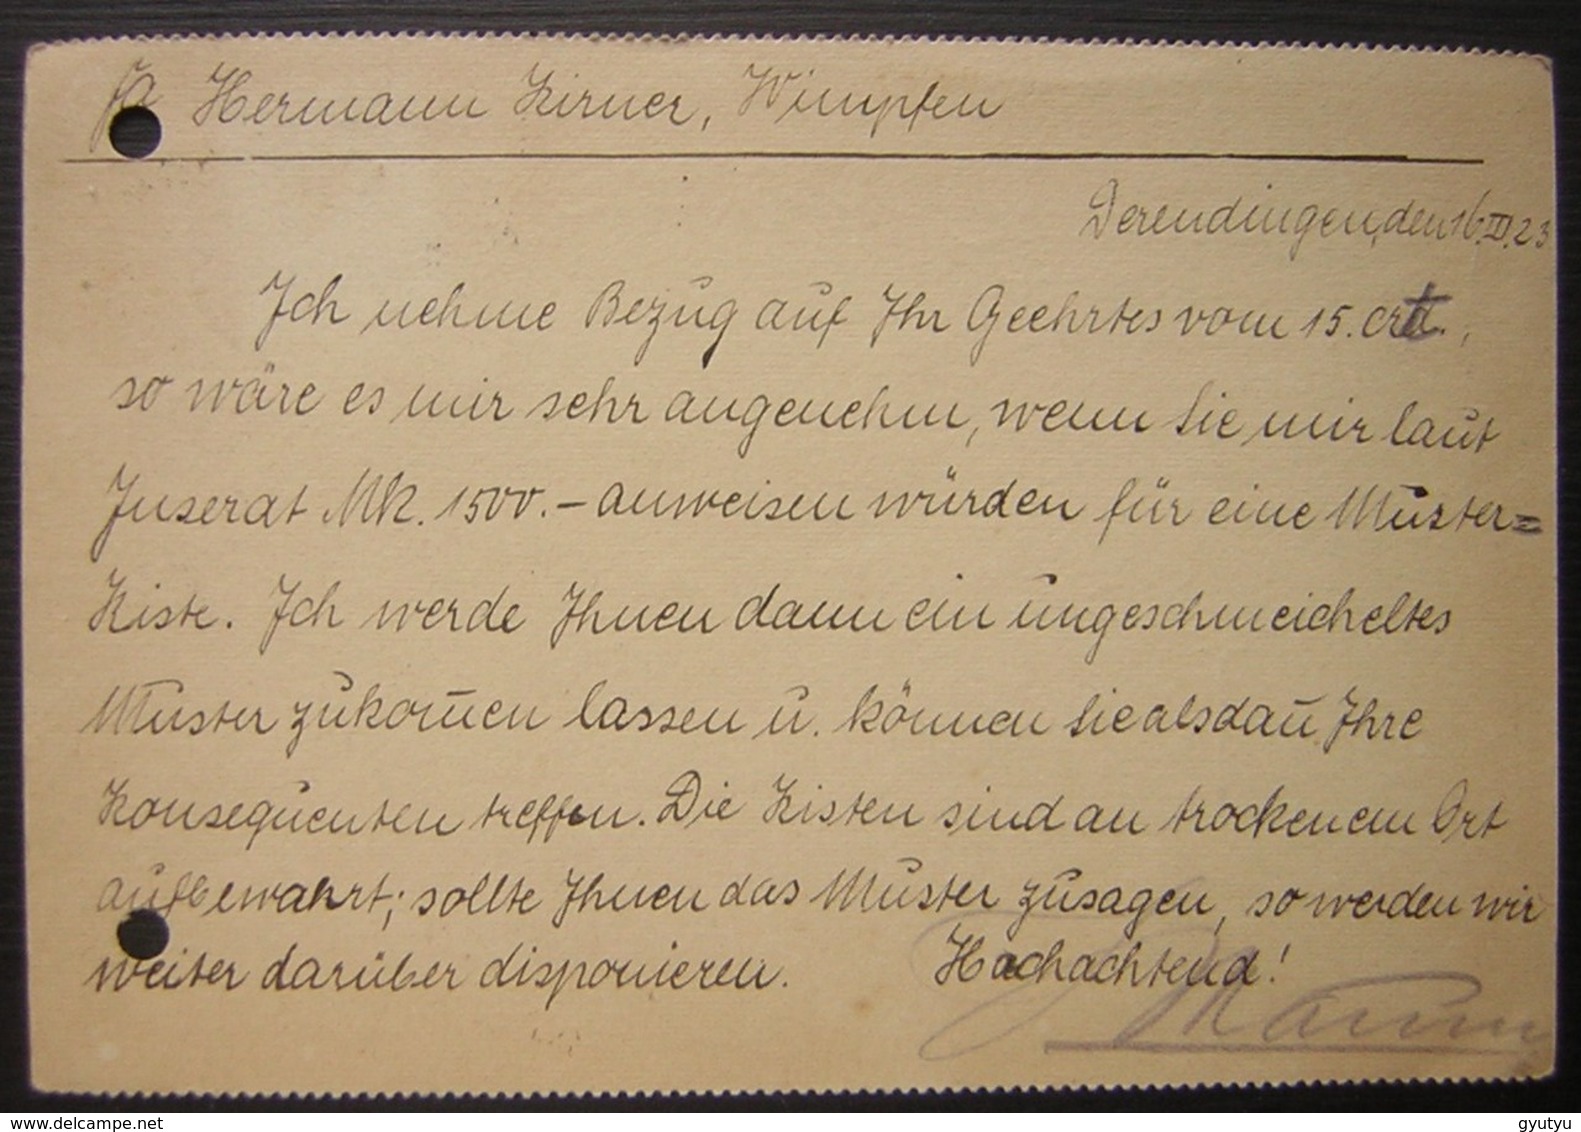 Fa Hermann Kirner, Wimpfen
Derendingen, den 16.III.23
Ich nehme Bezug auf Ihr Geehrtes vom 15. crt.,
so wäre es mir sehr angenehm, wenn Sie mir laut
Inserat Mk. 1500.- anweisen würden für eine Muster=
Kiste. Ich werde Ihnen dann ein ungeschmeicheltes
Muster zukom̅en lassen u. können Sie alsdan̅ Ihre
Konsequenten treffen. Die Kisten sind an trockenem Ort
aufbewahrt; sollte Ihnen das Muster zusagen, so werden wir
weiter darüber disponieren. Hochachtend!
delcampe.net
gyutyu